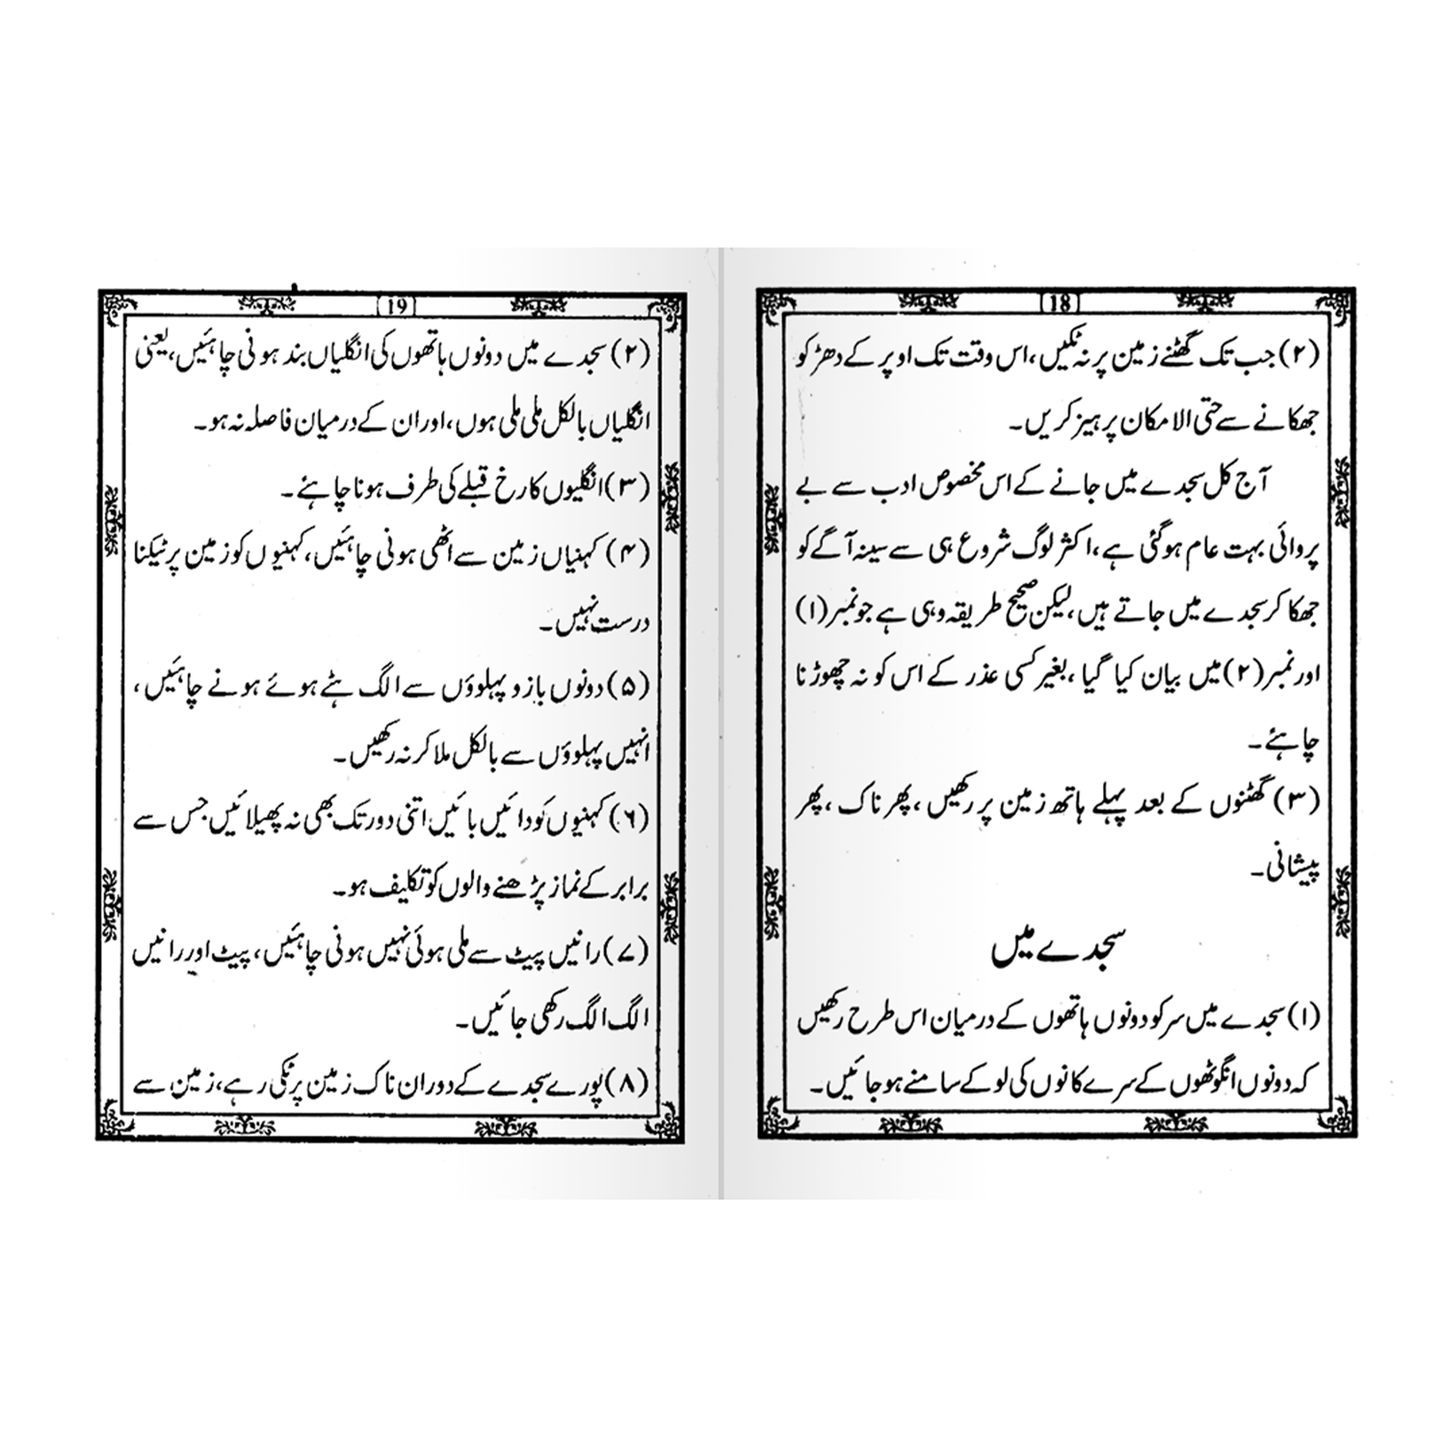 18
(۲) جب تک گھٹنے زمین پر نہ ٹکیں، اس وقت تک اوپر کے دھڑ کو
جھکانے سے حتی الامکان پرہیز کریں۔
آج کل سجدے میں جانے کے اس مخصوص ادب سے بے
پروائی بہت عام ہو گئی ہے، اکثر لوگ شروع ہی سے سینہ آگے کو
جھکا کر سجدے میں جاتے ہیں، لیکن صحیح طریقہ وہی ہے جو نمبر (۱)
اور نمبر (۲) میں بیان کیا گیا، بغیر کسی عذر کے اس کو نہ چھوڑنا
چاہئے۔
(۳) گھٹنوں کے بعد پہلے ہاتھ زمین پر رکھیں، پھر ناک، پھر
پیشانی۔
سجدے میں
(۱) سجدے میں سر کو دونوں ہاتھوں کے درمیان اس طرح رکھیں
کہ دونوں انگوٹھوں کے سرے کانوں کی لو کے سامنے ہو جائیں۔
19
(۲) سجدے میں دونوں ہاتھوں کی انگلیاں بند ہونی چاہئیں، یعنی
انگلیاں بالکل ملی ملی ہوں، اور ان کے درمیان فاصلہ نہ ہو۔
(۳) انگلیوں کا رخ قبلے کی طرف ہونا چاہئے۔
(۴) کہنیاں زمین سے اٹھی ہونی چاہئیں، کہنیوں کو زمین پر ٹیکنا
درست نہیں۔
(۵) دونوں بازو پہلوؤں سے الگ ہٹے ہوئے ہونے چاہئیں،
انہیں پہلوؤں سے بالکل ملا کر نہ رکھیں۔
(۶) کہنیوں کو دائیں بائیں اتنی دور تک بھی نہ پھیلائیں جس سے
برابر کے نماز پڑھنے والوں کو تکلیف ہو۔
(۷) رانیں پیٹ سے ملی ہوئی نہیں ہونی چاہئیں، پیٹ اور رانیں
الگ الگ رکھی جائیں۔
(۸) پورے سجدے کے دوران ناک زمین پر ٹکی رہے، زمین سے